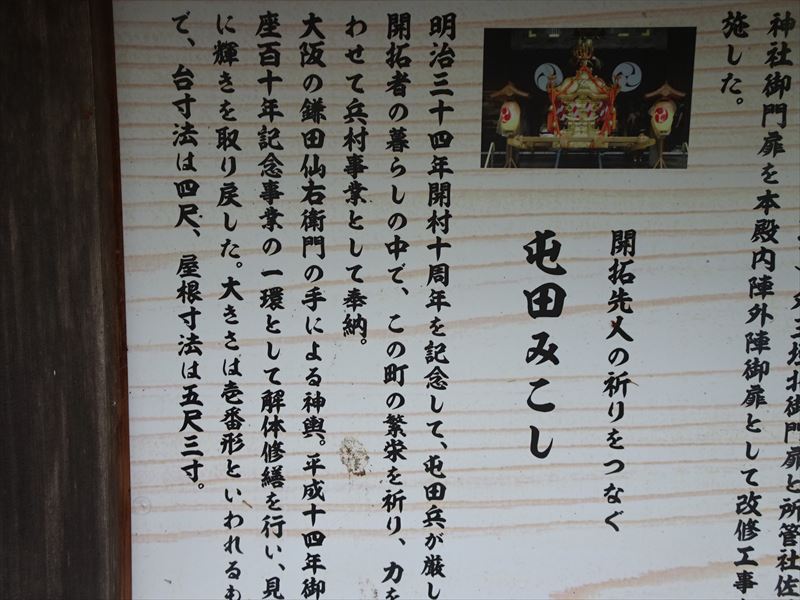 外三場北御門扉と所管社佐
神社御門扉を本殿内陣外陣御扉として改修工事
施した。
開拓先人の祈りをつなぐ
屯田みこし
明治三十四年開村十周年を記念して、屯田兵が厳し
開拓者の暮らしの中で、この町の繁栄を祈り、力を
わせて兵村事業として奉納。
大阪の鎌田仙右衛門の手による神輿。平成十四年御
座百十年記念事業の一環として解体修繕を行い、見
に輝きを取り戻した。大きさは壱番形といわれるも
で、台寸法は四尺、屋根寸法は五尺三寸。